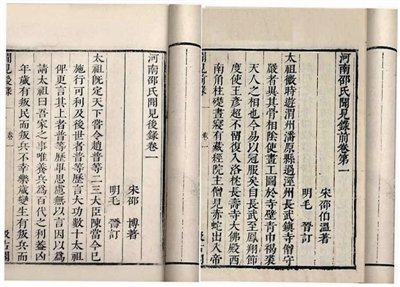 河南邵氏聞見錄前卷第一
宋邵伯溫著
明毛 晉訂
太祖微時遊渭州潘原縣過涇州長武鎮寺僧守
嚴者異其骨相陰使畫工圖於寺壁青巾褐裘
天人之相也今易以冠服矣自長武至鳳翔節
度使王彥超不留復入洛枕長壽寺大佛殿西
南角柱礎晝寢有藏經院主僧見赤蛇出入
聞見前錄 卷一
河南邵氏聞見後錄卷一
宋邵 博著
明毛 晉訂
太祖既定天下嘗令趙普等二三大臣陳當今已
施行可利及後世者普等歷言大功數十太祖
俾更言其上者普等歷畢思慮無以言因以為
請太祖曰吾家之事唯養兵為百代之利蓋凶
年歲有叛民而叛兵不幸樂歲變生有叛兵而
聞見後錄 卷一